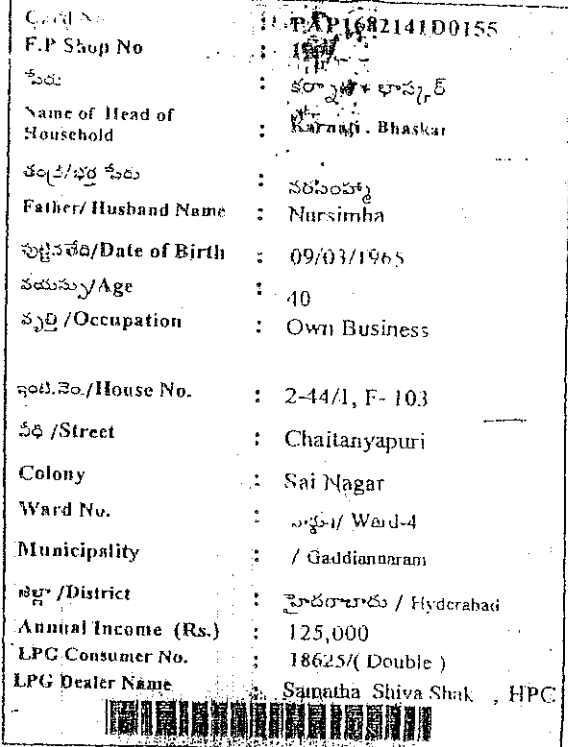 Card No : PAP1682141D0155
F.P Shop No :
పేరు : కర్నాటి భాస్కర్
Name of Head of
Household : Karnati . Bhaskar
తండ్రి/భర్త పేరు : నరసింహ్మా
Father/ Husband Name : Nursimha
పుట్టినతేది/Date of Birth : 09/03/1965
వయస్సు/Age : 40
వృత్తి /Occupation : Own Business
ఇంటి.నెం./House No. : 2-44/1, F- 103
వీధి /Street : Chaitanyapuri
Colony : Sai Nagar
Ward No. : / Ward-4
Municipality : / Gaddiannaram
జిల్లా /District : హైదరాబాదు / Hyderabad
Annual Income (Rs.) : 125,000
LPG Consumer No. : 18625/( Double )
LPG Dealer Name : Samatha Shiva Shak , HPC